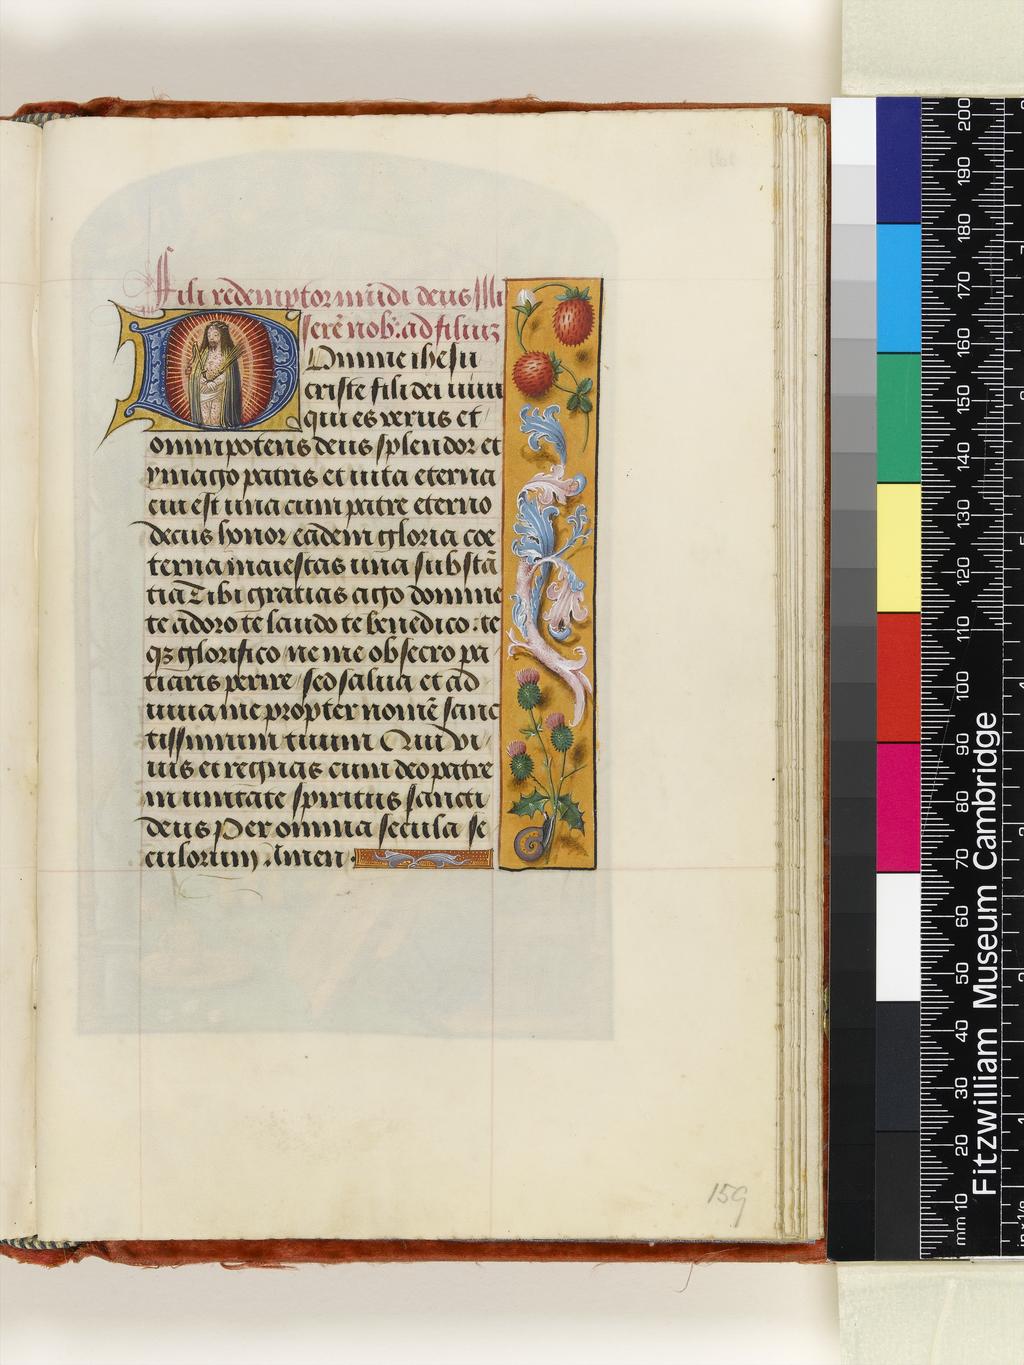 Fili redemptor mūdi deus Mi
serē nob. ad filiuz
Domine ihesu
criste fili dei uiui
qui es verus et
omnipotens deus splendor et
ymago patris et uita eterna
cui est una cum patre eterno
decus honor eadem gloria coe
terna maiestas una substā
tia Tibi gratias ago domine
te adoro te laudo te benedico te
qz glorifico ne me obsecro pa
tiaris perire sed salua et ad
iuua me propter nomē sanc
tissimum tuum Qui vi
uis et regnas cum deo patre
in unitate spiritus sancti
deus Per omnia secula se
culorum Amen
159
Fitzwilliam Museum Cambridge
mm 10 20 30 40 50 60 70 80 90 100 110 120 130 140 150 160 170 180 190 200